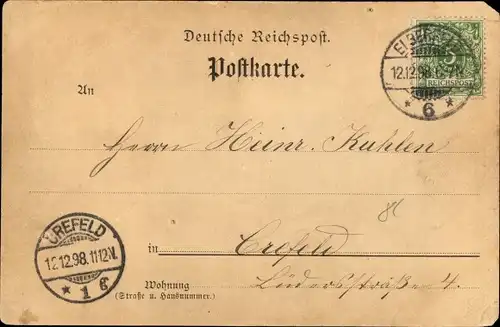 Deutsche Reichspost.
Postkarte.
An
Herrn Heinr. Kuhlen
in Crefeld
Wohnung
(Straße u. Hausnummer.)
4.
12.12.98.
REICHSPOST
* 6 *
CREFELD
12.12.98.1112N.
* 1 c